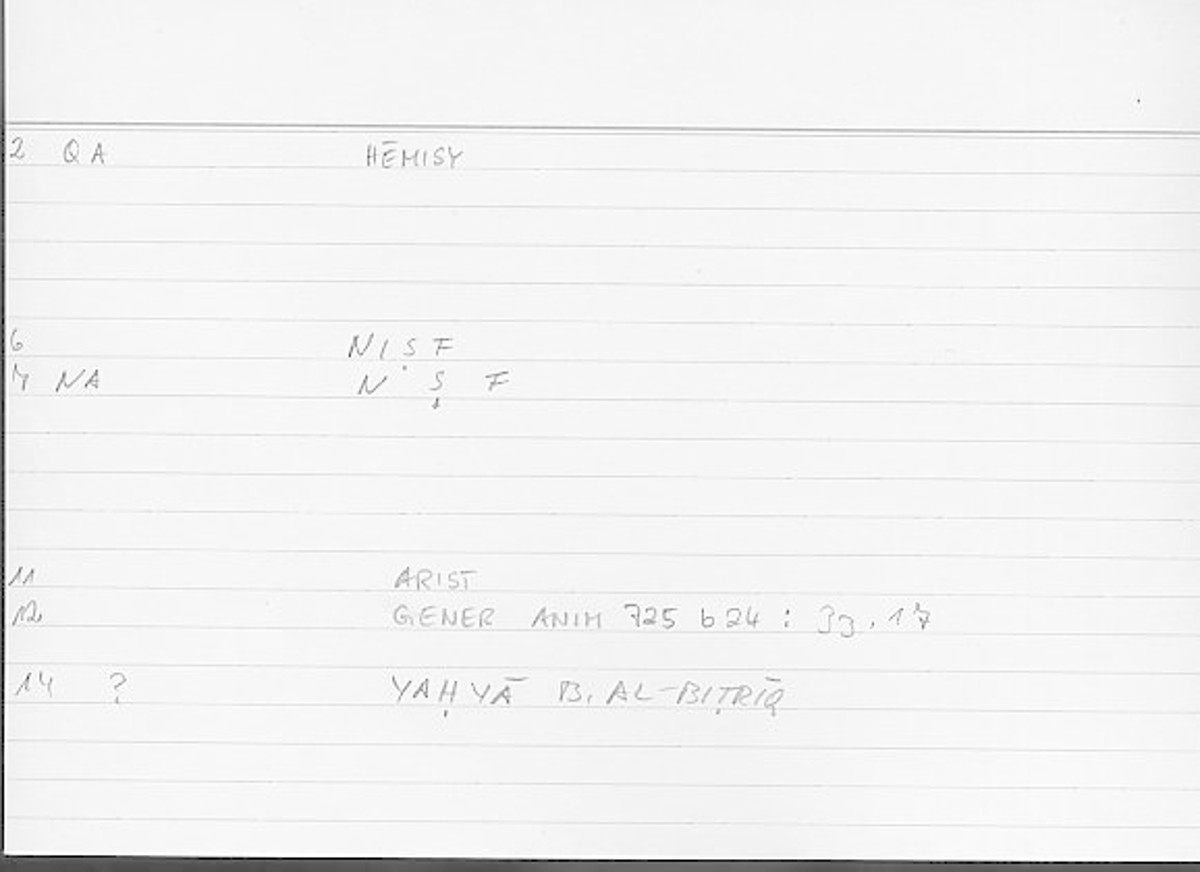 2 QA HĒMISY
6 NIṢF
7 NA N Ṣ F
11 ARIST
12 GENER ANIM 725 b 24 : 33, 17
14 ? YAḤYĀ B. AL-BIṬRĪQ